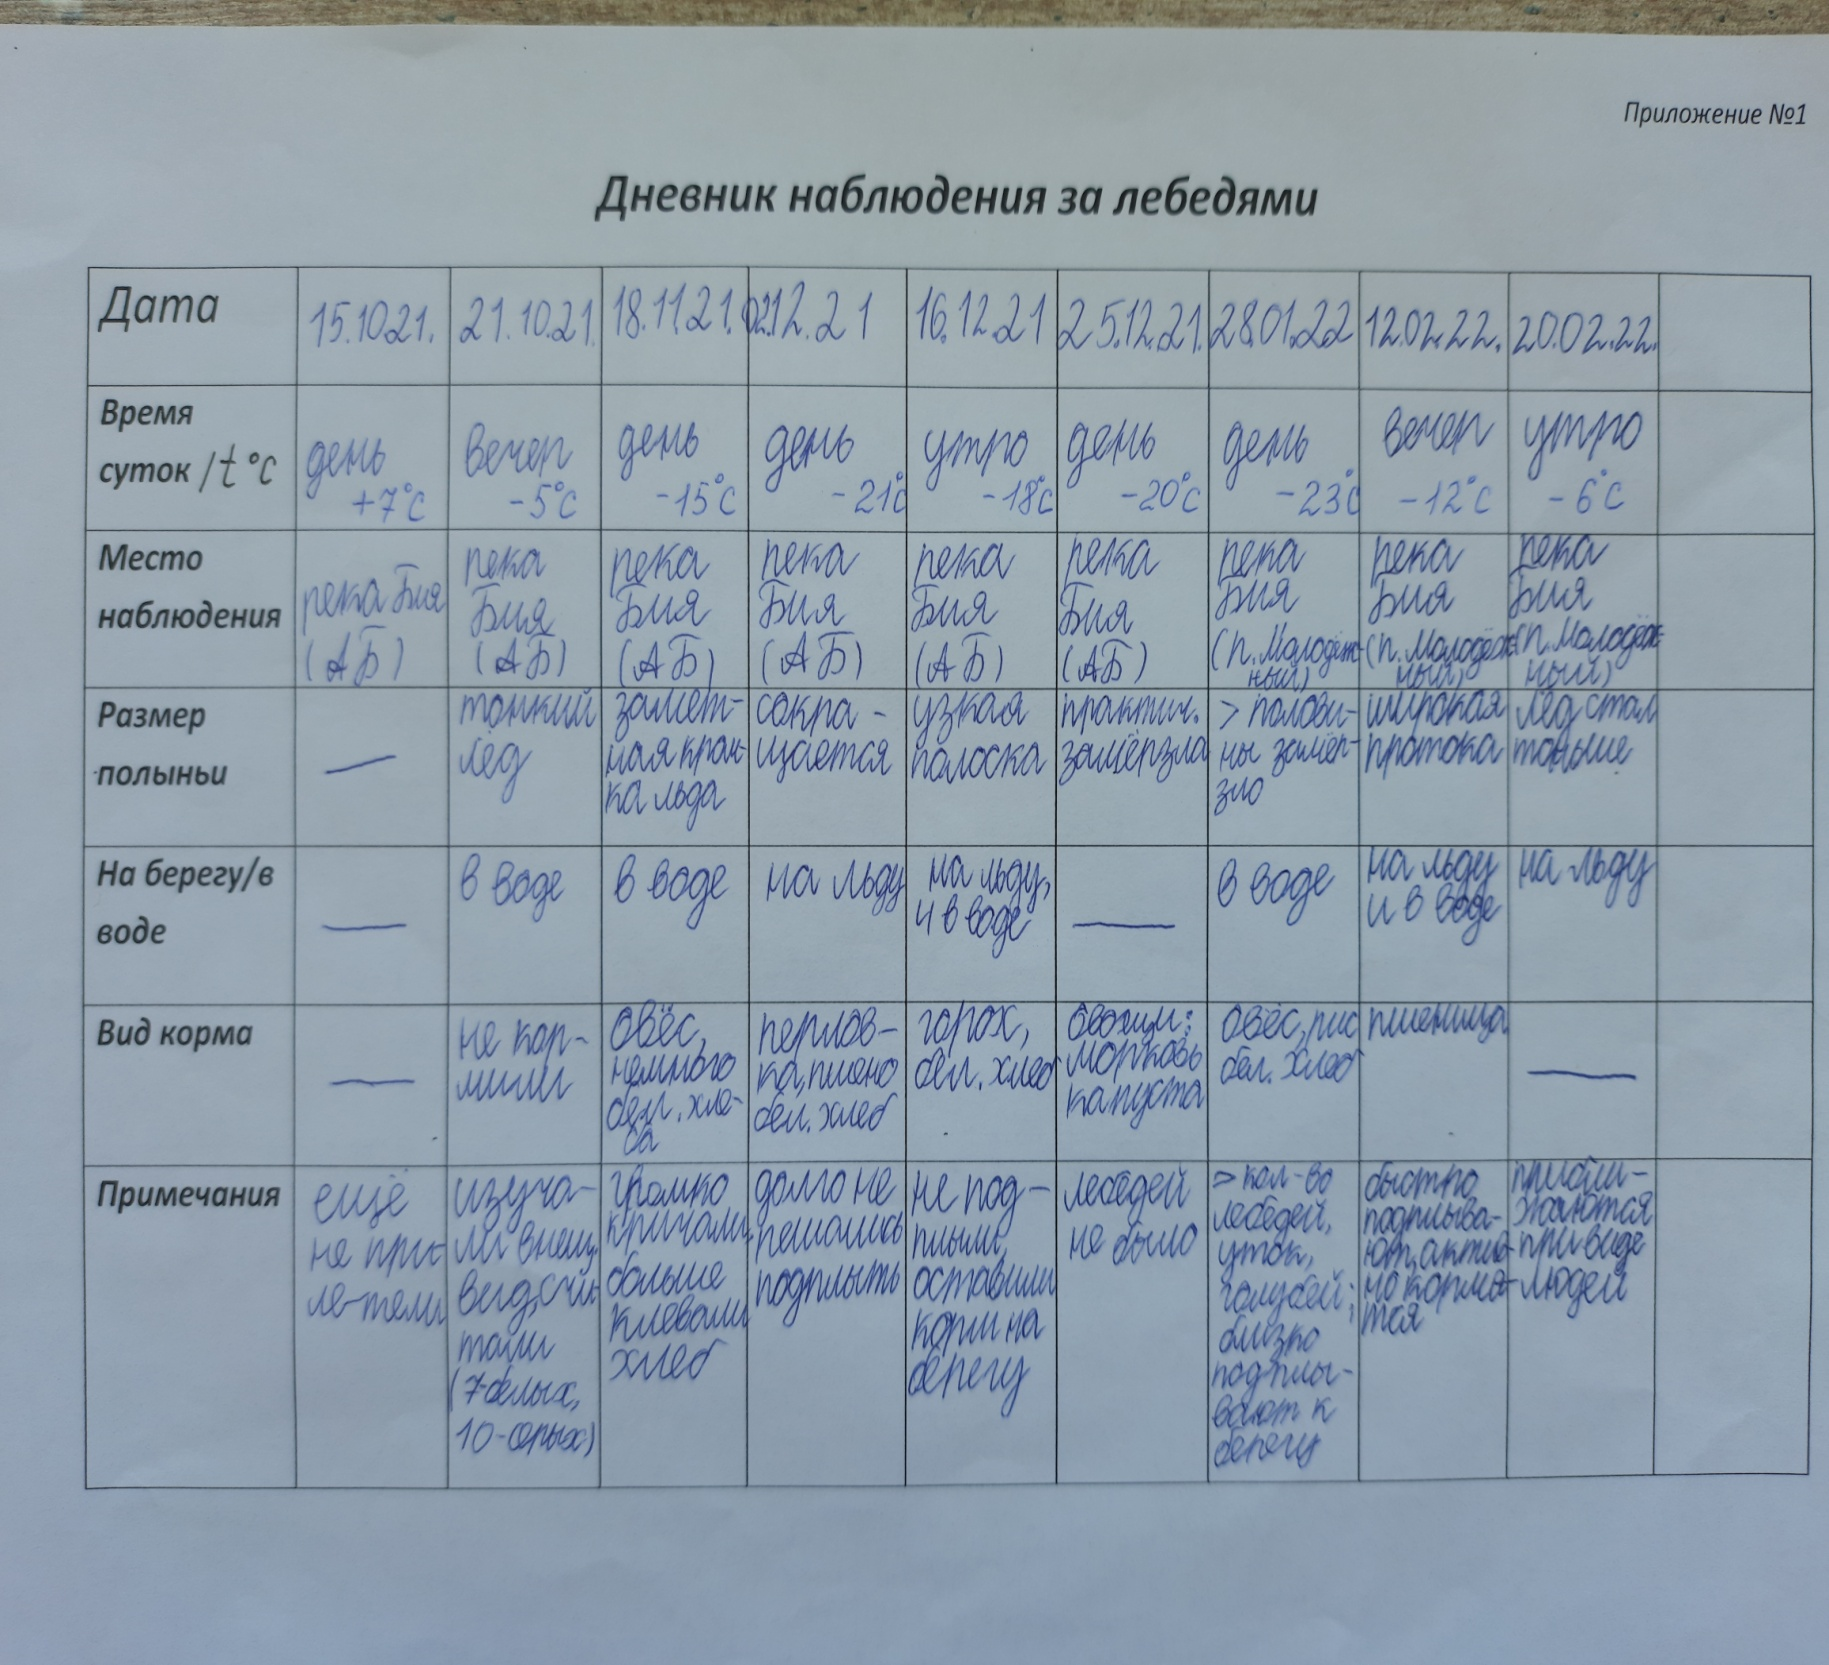 Приложение №1
Дневник наблюдения за лебедями
Дата
15.10.21.
21.10.21.
18.11.21.
02.12.21
16.12.21
25.12.21.
28.01.22
12.02.22.
20.02.22.
Время
суток /t°C
день
+7°C
вечер
-5°C
день
-15°C
день
-21°C
утро
-18°C
день
-20°C
день
-23°C
вечер
-12°C
утро
-6°C
Место
наблюдения
река Бия
(АБ)
река
Бия
(АБ)
река
Бия
(АБ)
река
Бия
(АБ)
река
Бия
(АБ)
река
Бия
(АБ)
река
Бия
(п. Молодёж-
ный)
река
Бия
(п. Молодёж-
ный)
река
Бия
(п. Молодёж-
ный)
Размер
полыньи
—
тонкий
лёд
замет-
ная кром-
ка льда
сокра-
щается
узкая
полоска
практич.
замёрзла
> полови-
ны замёр-
зло
широкая
протока
лёд стал
тоньше
На берегу/в
воде
—
в воде
в воде
на льду
на льду,
и в воде
—
в воде
на льду
и в воде
на льду
Вид корма
—
не кор-
мили
овёс,
немного
бел. хле-
ба
перлов-
ка, пшено
бел. хлеб
горох,
бел. хлеб
овощи:
морковь
капуста
овёс, рис
бел. хлеб
пшеница
—
Примечания
ещё
не при-
ле-тели
изуча-
ли внеш.
вид, счи-
тали
(7-белых,
10-серых)
громко
кричали,
больше
клевали
хлеб
долго не
решались
подплыть
не под-
плыли,
оставили
корм на
берегу
лебедей
не было
> кол-во
лебедей,
уток,
голубей;
близко
подплы-
вают к
берегу
быстро
подплыва-
ют, актив-
но кормя-
тся
прибли-
жаются
при виде
людей